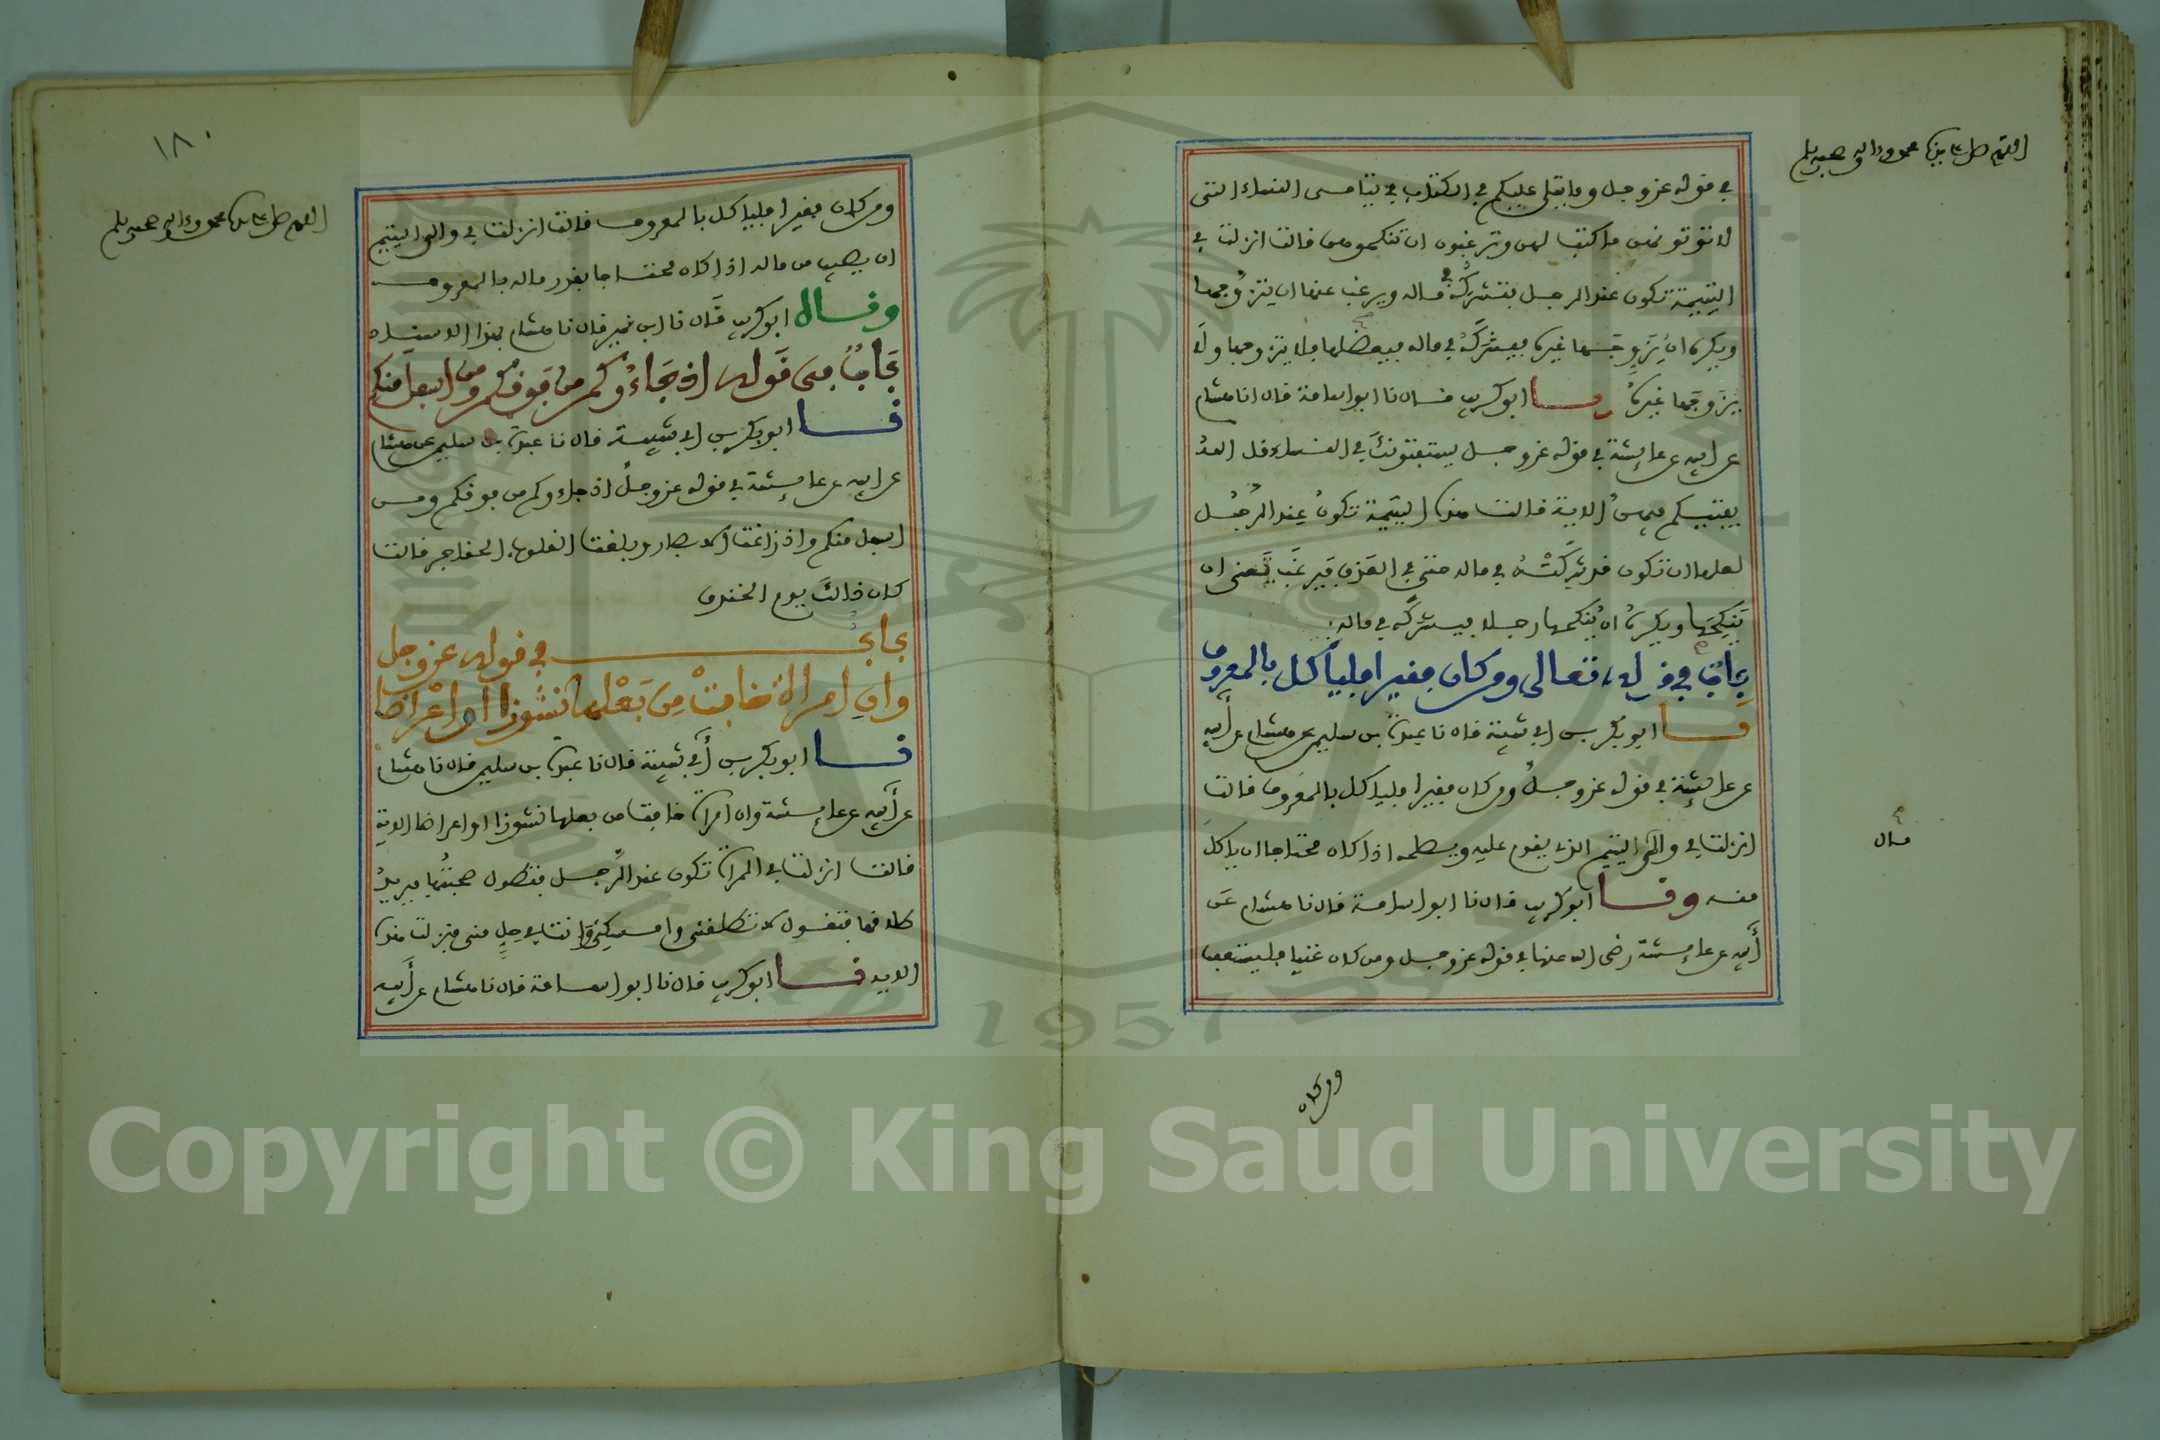 اللهم صل على سيدنا محمد وءاله وصحبه وسلم
في قوله عز وجل وما يتلى عليكم في الكتاب في يتامى النساء التي
لا تؤتونهن ما كتب لهن وترغبون ان تنكحوهن قالت انزلت في
اليتيمة تكون عند الرجل فتشركه في ماله ويرغب عنها ان يتزوجها
ويكره ان يزوجها غيره فيشركه في ماله فيعضلها فلا يتزوجها ولا
يزوجها غيره نا ابو كريب قال نا ابو اسامة قال انا هشام
عن ابيه عن عايشة في قوله عز وجل يستفتونك في النساء قل الله
يفتيكم فيهن الاية قالت هذه اليتيمة تكون عند الرجل
لعلها ان تكون قد شركته في ماله حتى في العذق فيرغب يعني ان
ينكحها ويكره ان ينكحها رجلا فيشركه في ماله
باب في قوله تعالى ومن كان فقيرا فلياكل بالمعروف
نا ابو بكر بن ابي شيبة قال نا عبدة بن سليمن عن هشام عن أبيه
عن عايشة في قوله عز وجل ومن كان فقيرا فلياكل بالمعروف قالت
انزلت في والي اليتيم الذي يقوم عليه ويصلحه اذا كان محتاجا ان ياكل
منه ونا ابو كريب قال نا ابو اسامة قال نا هشام عن
أبيه عن عايشة رضي الله عنها في قوله عز وجل ومن كان غنيا فليستعفف
مال
ومن كان
١٨٠
اللهم صل على سيدنا محمد وءاله وصحبه وسلم
ومن كان فقيرا فلياكل بالمعروف قالت انزلت في والي اليتيم
ان يصيب من ماله اذا كان محتاجا بقدر ماله بالمعروف
وناه ابو كريب قال نا ابن نمير قال نا هشام بهذا الاسناد
باب في قوله اذ جاءوكم من فوقكم ومن اسفل منكم
نا ابو بكر بن ابي شيبة قال نا عبدة بن سليمن عن هشام
عن ابيه عن عايشة في قوله عز وجل اذ جاءوكم من فوقكم ومن
اسفل منكم واذ زاغت الابصار وبلغت القلوب الحناجر قالت
كان ذالك يوم الخندق
باب في قوله عز وجل
وان امراة خافت من بعلها نشوزا او اعراضا
نا ابو بكر بن أبي شيبة قال نا عبدة بن سليمن قال نا هشام
عن أبيه عن عايشة وان امراة خافت من بعلها نشوزا او اعراضا الاية
قالت انزلت في المراة تكون عند الرجل فتطول صحبتها فيريد
طلاقها فتقول لا تطلقني وامسكني وانت في حل مني فنزلت هذه
الاية نا ابو كريب قال نا ابو اسامة قال نا هشام عن أبيه
1957
Copyright © King Saud University